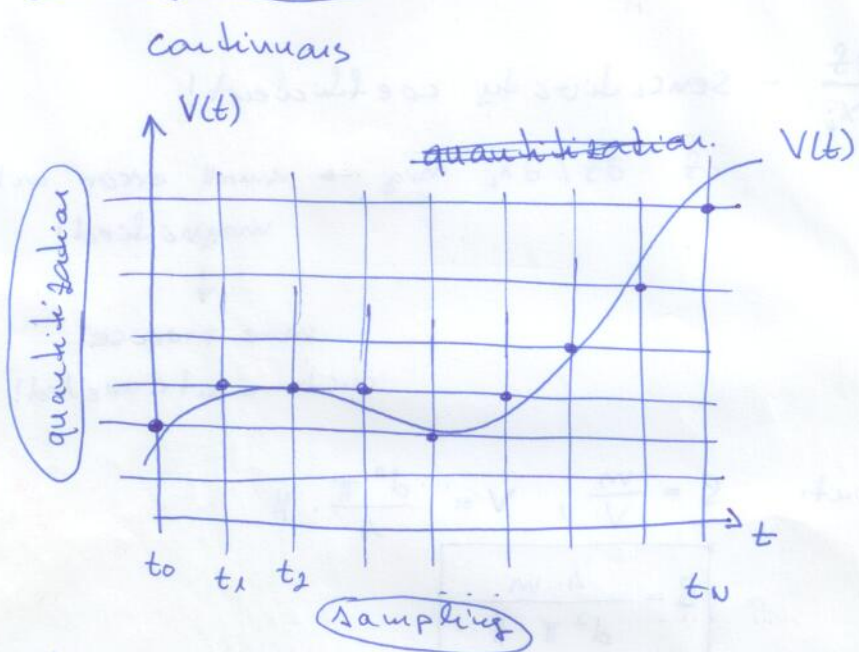 continuous
V(t)
quantitization.
V(t)
quantitization
t
t0 t1 t2 tN
sampling